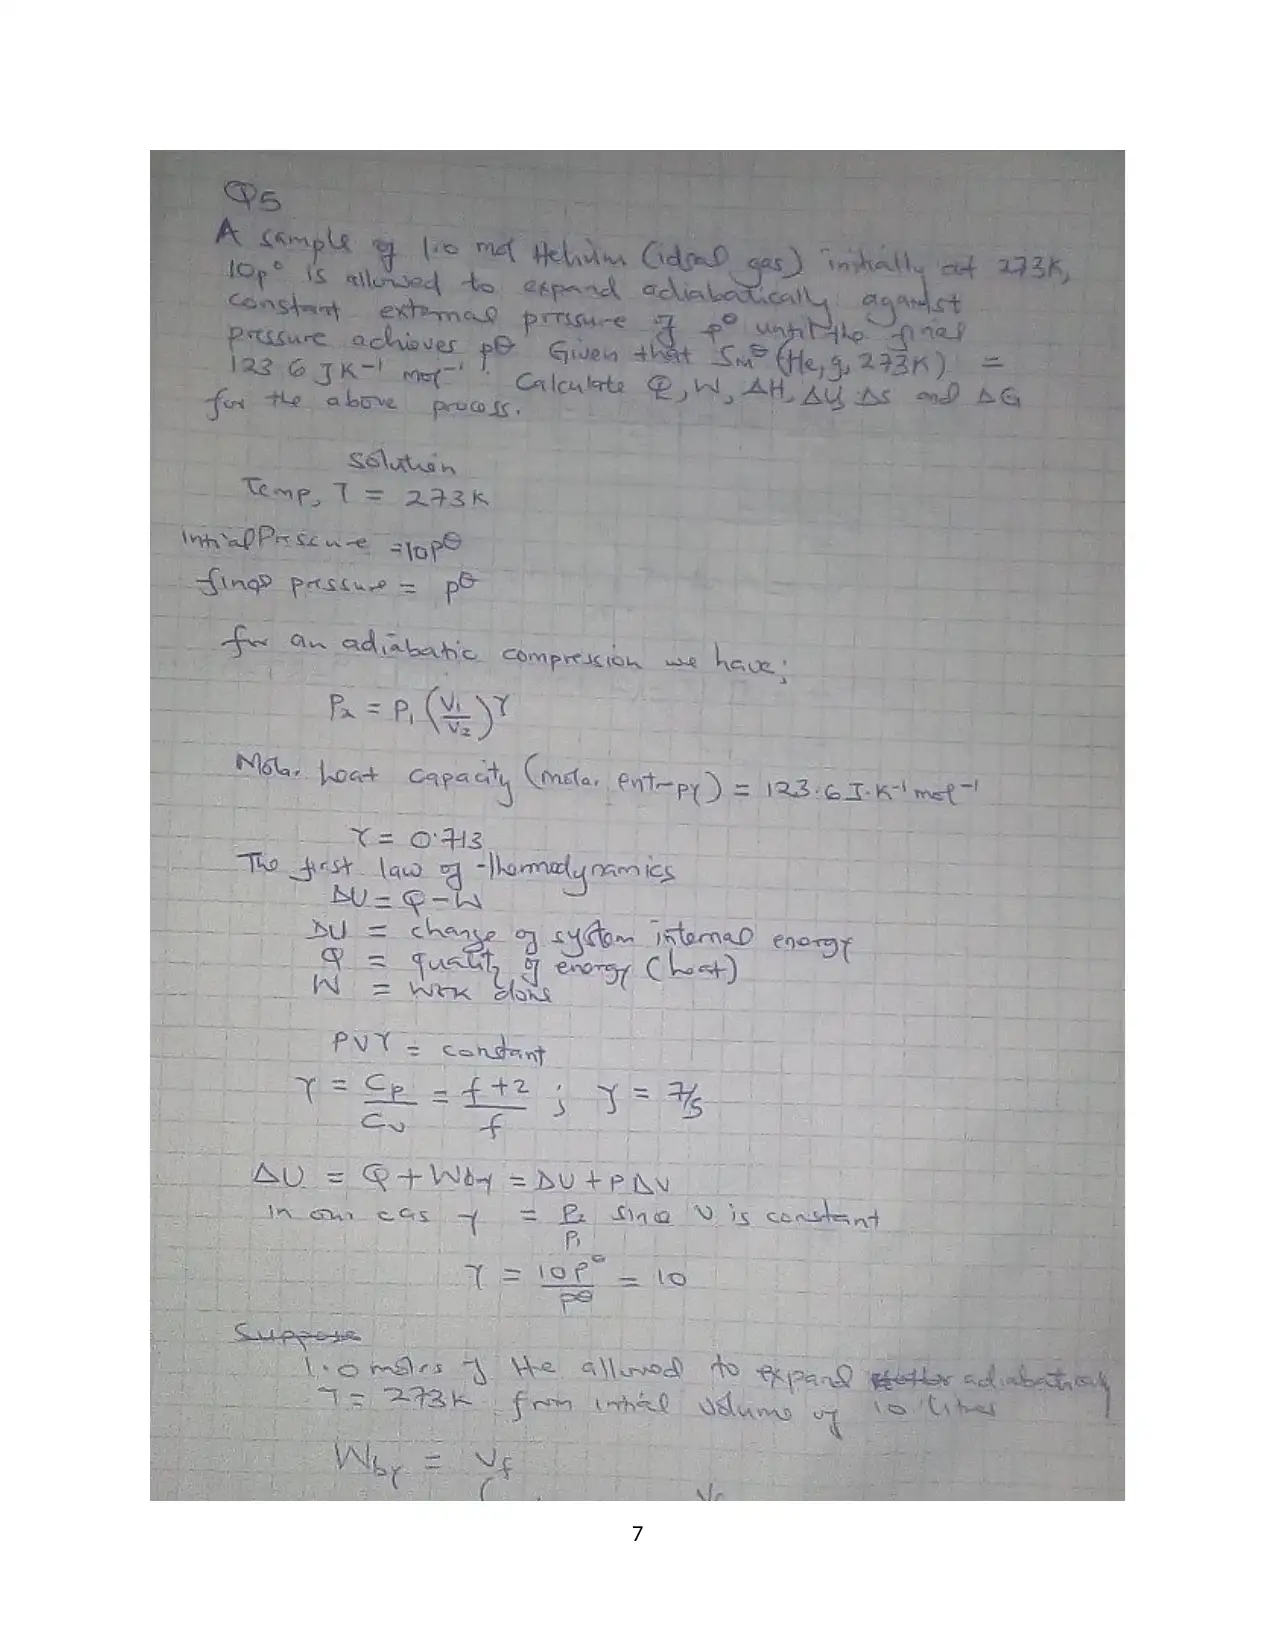 Q5
A sample of 1.0 mol Helium (ideal gas) initially at 273K,
10p° is allowed to expand adiabatically against
constant external pressure of p° until the final
pressure achieves pθ Given that Smθ (He, g, 273K) =
123.6 J K-1 mol-1. Calculate Q, W, ΔH, ΔU, ΔS and ΔG
for the above process.
Solution
Temp, T = 273K
Initial Pressure = 10pθ
final pressure = pθ
for an adiabatic compression we have;
P2 = P1 (V1/V2)γ
Molar heat capacity (molar entropy) = 123.6 J.K-1 mol-1
γ = 0.713
The first law of thermodynamics
ΔU = Q - W
ΔU = change of system internal energy
Q = quality of energy (heat)
W = work done
PVγ = constant
γ = Cp/Cv = f+2/f ; γ = 7/5
ΔU = Q + Wby = ΔU + PΔV
in our cas γ = P2/P1 since V is constant
γ = 10p°/pθ = 10
Suppose
1.0 moles of He allowed to expand adiabatically
T = 273K from initial volume of 10 litres
Wby = Vf
7